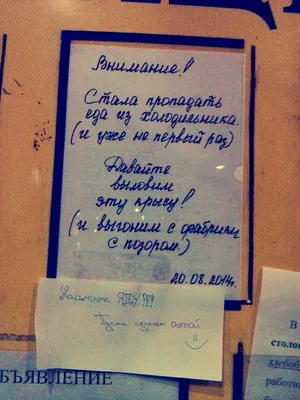 Внимание!!
Стала пропадать
еда из холодильника.
(и уже не первый раз)
Давайте
выловим
эту крысу!
(и выгоним с фабрики
с позором.)
20.08.2014г.
ЯДУ!!!
Пусть сдохнет сытой
ОБЪЯВЛЕНИЕ
В
столов
хлебоб
работн